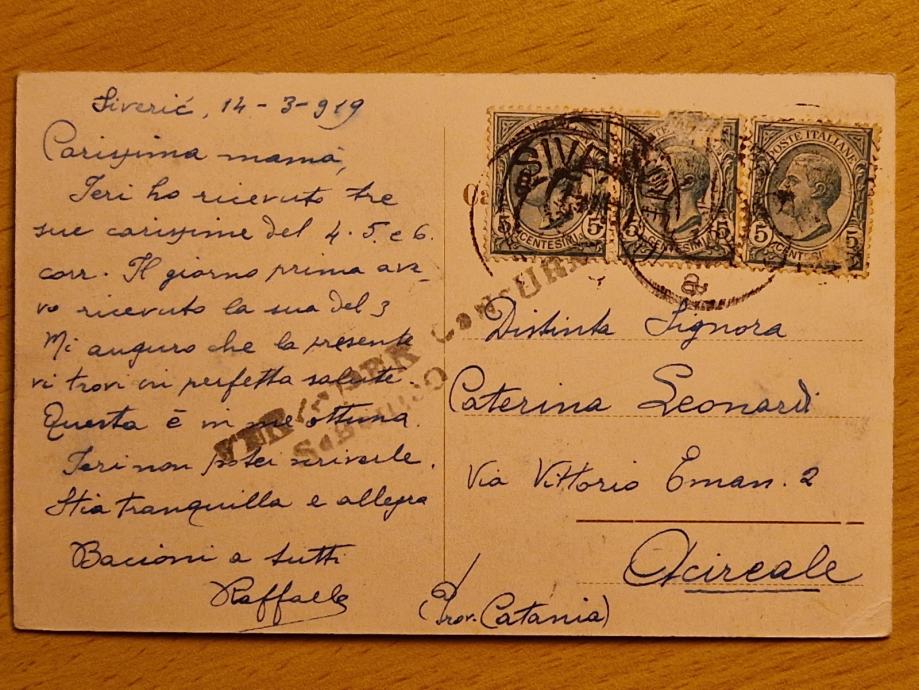 Siverić, 14-3-919
Carissima mamá,
Ieri ho ricevuto tre
sue carissime del 4. 5. e 6.
corr. Il giorno prima ave-
vo ricevuto la sua del 3
Mi auguro che la presente
vi trovi in perfetta salute.
Questa è in me ottima.
Ieri non potei scriverle.
Stia tranquilla e allegra
Bacioni a tutti
Raffaele
POSTE ITALIANE
5 CENTESIMI 5
5 CENTESIMI 5
5 CENTESIMI 5
SIVE
a
VER PER CENSURA
Distinta Signora
Caterina Leonardi
Via Vittorio Eman. 2
Acireale
(Prov. Catania)